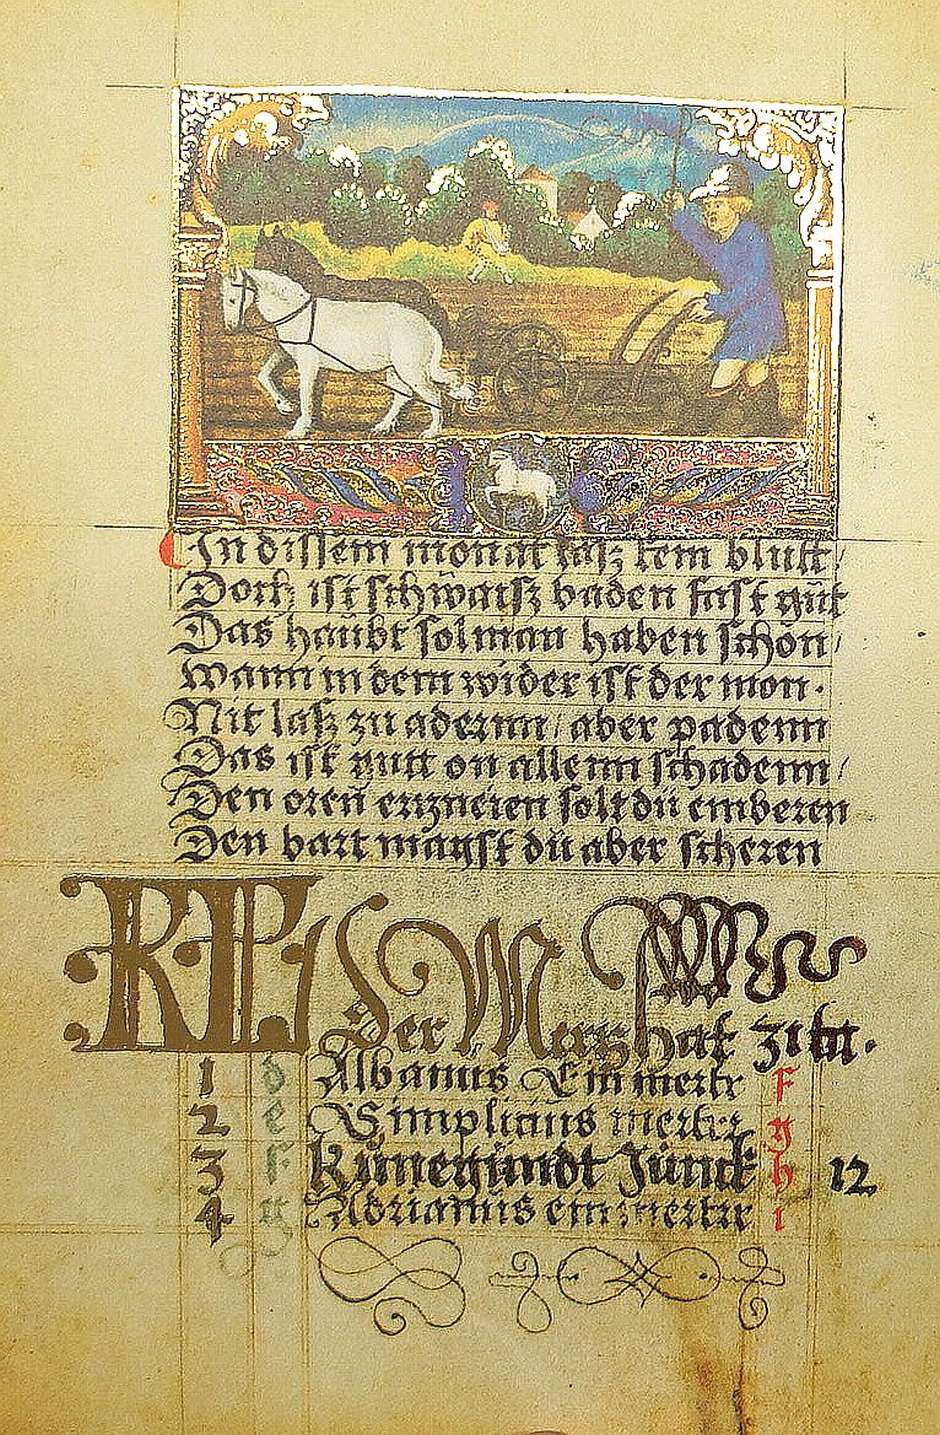 In dissem monat lasz kein blutt /
Doch ist schwaisz baden fast gut
Das haubt sol man haben schon /
wann in dem wider ist der mon ·
Nit lasz zu adernn / aber padenn
Das ist gutt on allenn schadenn /
Den oren ertzneien solt dü emberen
Den bart magst dü aber scheren
KL
Der Mertz hat 31 tag.
1 d Albanus Ein mertr F
2 e Simplicius mertrer g
3 f Künegündt Jünck h 12
4 g Adrianus ein mertrer i